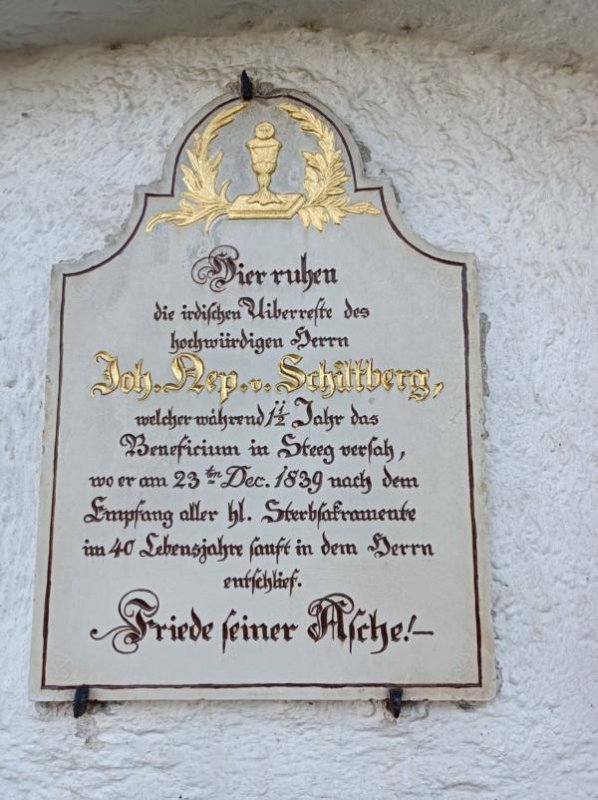 Hier ruhen
die irdischen Uiberreste des
hochwürdigen Herrn
Joh. Nep. v. Schiltberg,
welcher während 1½ Jahr das
Beneficium in Steeg versah,
wo er am 23ten Dec. 1839 nach dem
Empfang aller hl. Sterbsakramente
im 40 Lebensjahre sanft in dem Herrn
entschlief.
Friede seiner Asche!—